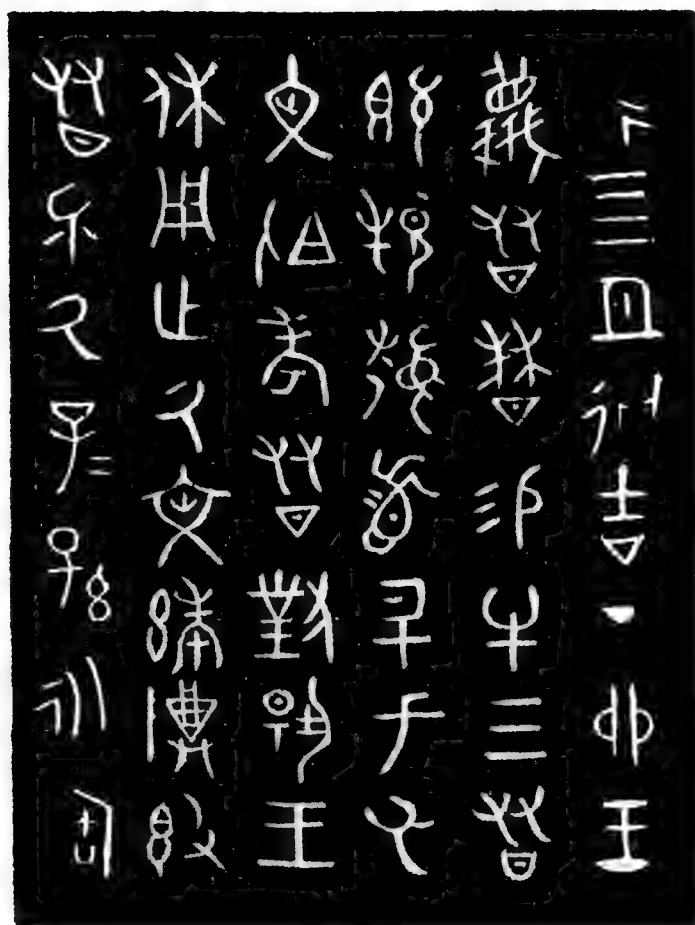 隹四月初吉丁卯王
蔑友曆易牛三友
既拜𩒨首升于厥
文且考友對揚王
休用乍厥文考尊𣪘
友眔厥子=孫永寶